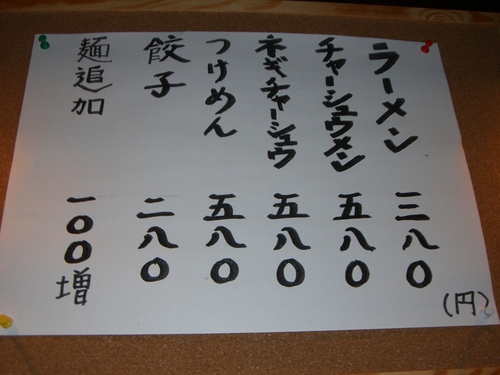 ラーメン 三八〇
チャーシュウメン 五八〇
ネギチャーシュウ 五八〇
つけめん 五八〇
餃子 二八〇
麺追加 一〇〇増
(円)